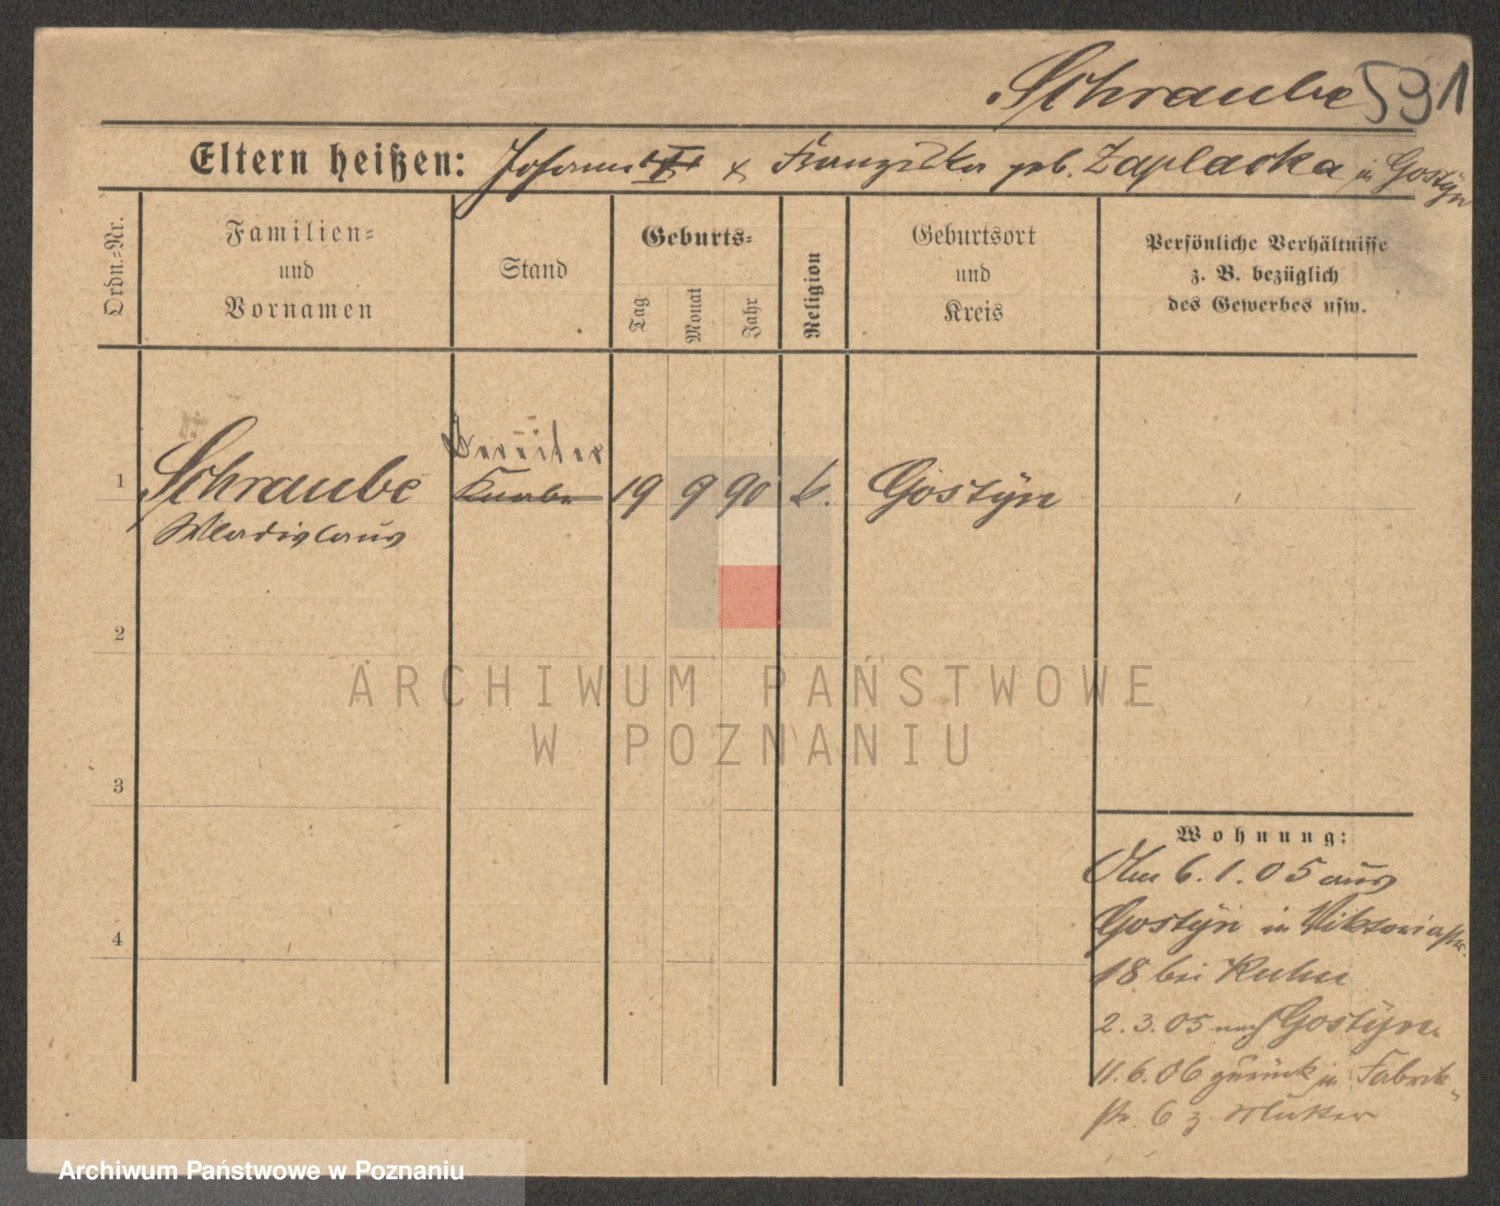 Schraube 591
Eltern heißen: Johann u. Franziska geb. Zaplacka in Gostÿn
Ordn.-Nr.
Familien-
und
Vornamen
Stand
Geburts-
Tag
Monat
Jahr
Religion
Geburtsort
und
Kreis
Persönliche Verhältnisse
z. B. bezüglich
des Gewerbes usw.
1 Schraube Knabe 19 9 90 k. Gostÿn
Wladislaus
2
3
4
Wohnung:
Am 6.1.05 aus
Gostÿn in Viktoriastr.
18 bei Kuhn
2.3.05 nach Gostÿn.
11.6.06 zurück in Fabrik-
str. 6 z. Mutter
ARCHIWUM PAŃSTWOWE
W POZNANIU
Archiwum Państwowe w Poznaniu